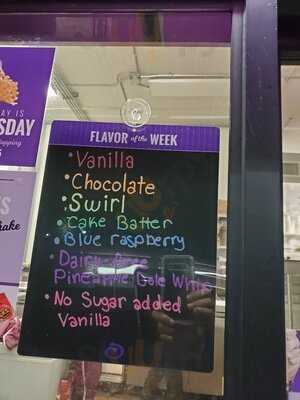 AY IS
SDAY
FLAVOR of the WEEK
• Vanilla
• Chocolate
• Swirl
• Cake Batter
• Blue raspberry
• Dairy free
Pineapple Dole Whip
• No Sugar added
Vanilla